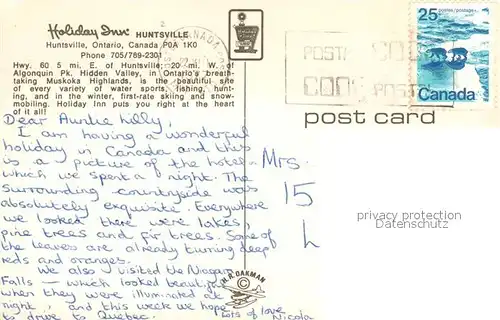 Holiday Inn® HUNTSVILLE
Huntsville, Ontario, Canada P0A 1K0
Phone 705/789-2301
Hwy. 60 5 mi. E. of Huntsville; 20 mi. W. of
Algonquin Pk. Hidden Valley, in Ontario's breath-
taking Muskoka Highlands, is the beautiful site
of every variety of water sports, fishing, hunt-
ing, and in the winter, first-rate skiing and snow-
mobiling. Holiday Inn puts you right at the heart
of it all!
Dear Auntie Lilly,
I am having a wonderful
holiday in Canada and this
is a picture of the hotel
which we spent a night. The
surrounding countryside was
absolutely exquisite. Everywhere
we looked there were lakes,
pine trees and fir trees. Some of
the leaves are already turning deep
reds and oranges.
We also visited the Niagara
Falls – which looked beautiful
when they were illuminated at
night, and this week we hope
to drive to Quebec.
Lots of love
Nicola
H.R. OAKMAN
©
CANADA
POSTAL CO
CODE POSTAL
25 postes/postage
Canada
post card
Mrs.
15
L
privacy protection
Datenschutz